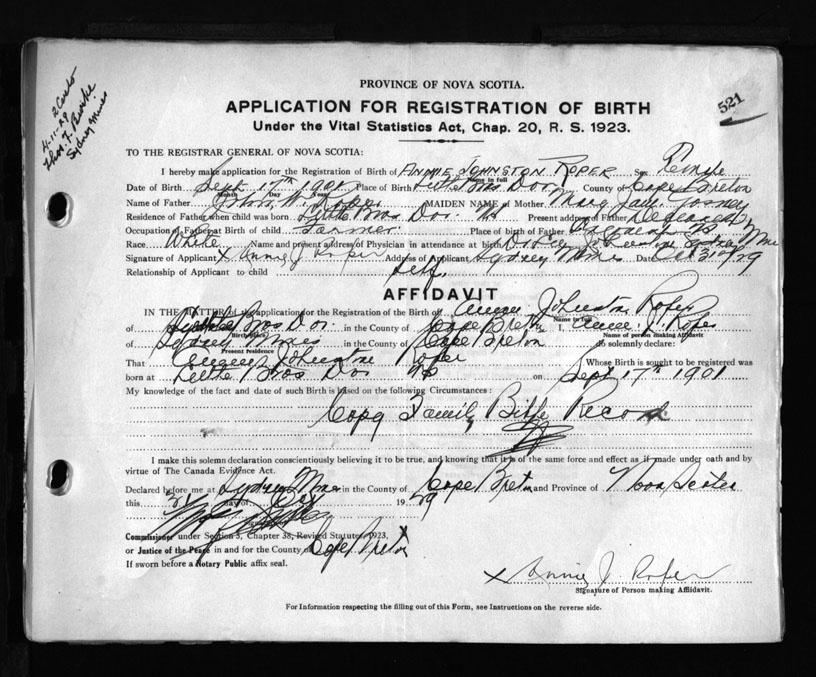 2 Certs
4-11-29
Thos. J. Burke
Sydney Mines
521
PROVINCE OF NOVA SCOTIA.
APPLICATION FOR REGISTRATION OF BIRTH
Under the Vital Statistics Act, Chap. 20, R. S. 1923.
TO THE REGISTRAR GENERAL OF NOVA SCOTIA:
I hereby make application for the Registration of Birth of ANNIE JOHNSTON ROPER Sex Female
Name in full
Date of Birth Sept 17th 1901 Place of Birth Little Bras Dor. County of Cape Breton
Month Day Year
Name of Father John W. Roper MAIDEN NAME of Mother Mary Jane
Residence of Father when child was born Little Bras Dor. NS Present address of Father Deceased
Occupation of Father at Birth of child Farmer. Place of birth of Father
Race White Name and present address of Physician in attendance at birth Sydney Mines
Signature of Applicant x Annie J Roper Address of Applicant Sydney Mines Date Oct 31st/29
Relationship of Applicant to child self.
AFFIDAVIT
IN THE MATTER of the application for the Registration of the Birth of Annie Johnston Roper
Name in full
of Little Bras Dor. in the County of Cape Breton I, Annie J. Roper
Birth place Name of person making Affidavit
of Sydney Mines in the County of Cape Breton do solemnly declare:
Present residence
That Annie Johnston Roper Whose Birth is sought to be registered was
born at Little Bras Dor NS on Sept 17th 1901
My knowledge of the fact and date of such Birth is based on the following Circumstances:
Copy Family Bible Record
I make this solemn declaration conscientiously believing it to be true, and knowing that it is of the same force and effect as if made under oath and by
virtue of The Canada Evidence Act.
Declared before me at Sydney Mines in the County of Cape Breton and Province of Nova Scotia
this 31 day of Oct 1929
Commissioner under Section 3, Chapter 38, Revised Statutes, 1923,
or Justice of the Peace in and for the County of Cape Breton
If sworn before a Notary Public affix seal.
x Annie J. Roper
Signature of Person making Affidavit.
For Information respecting the filling out of this Form, see Instructions on the reverse side.